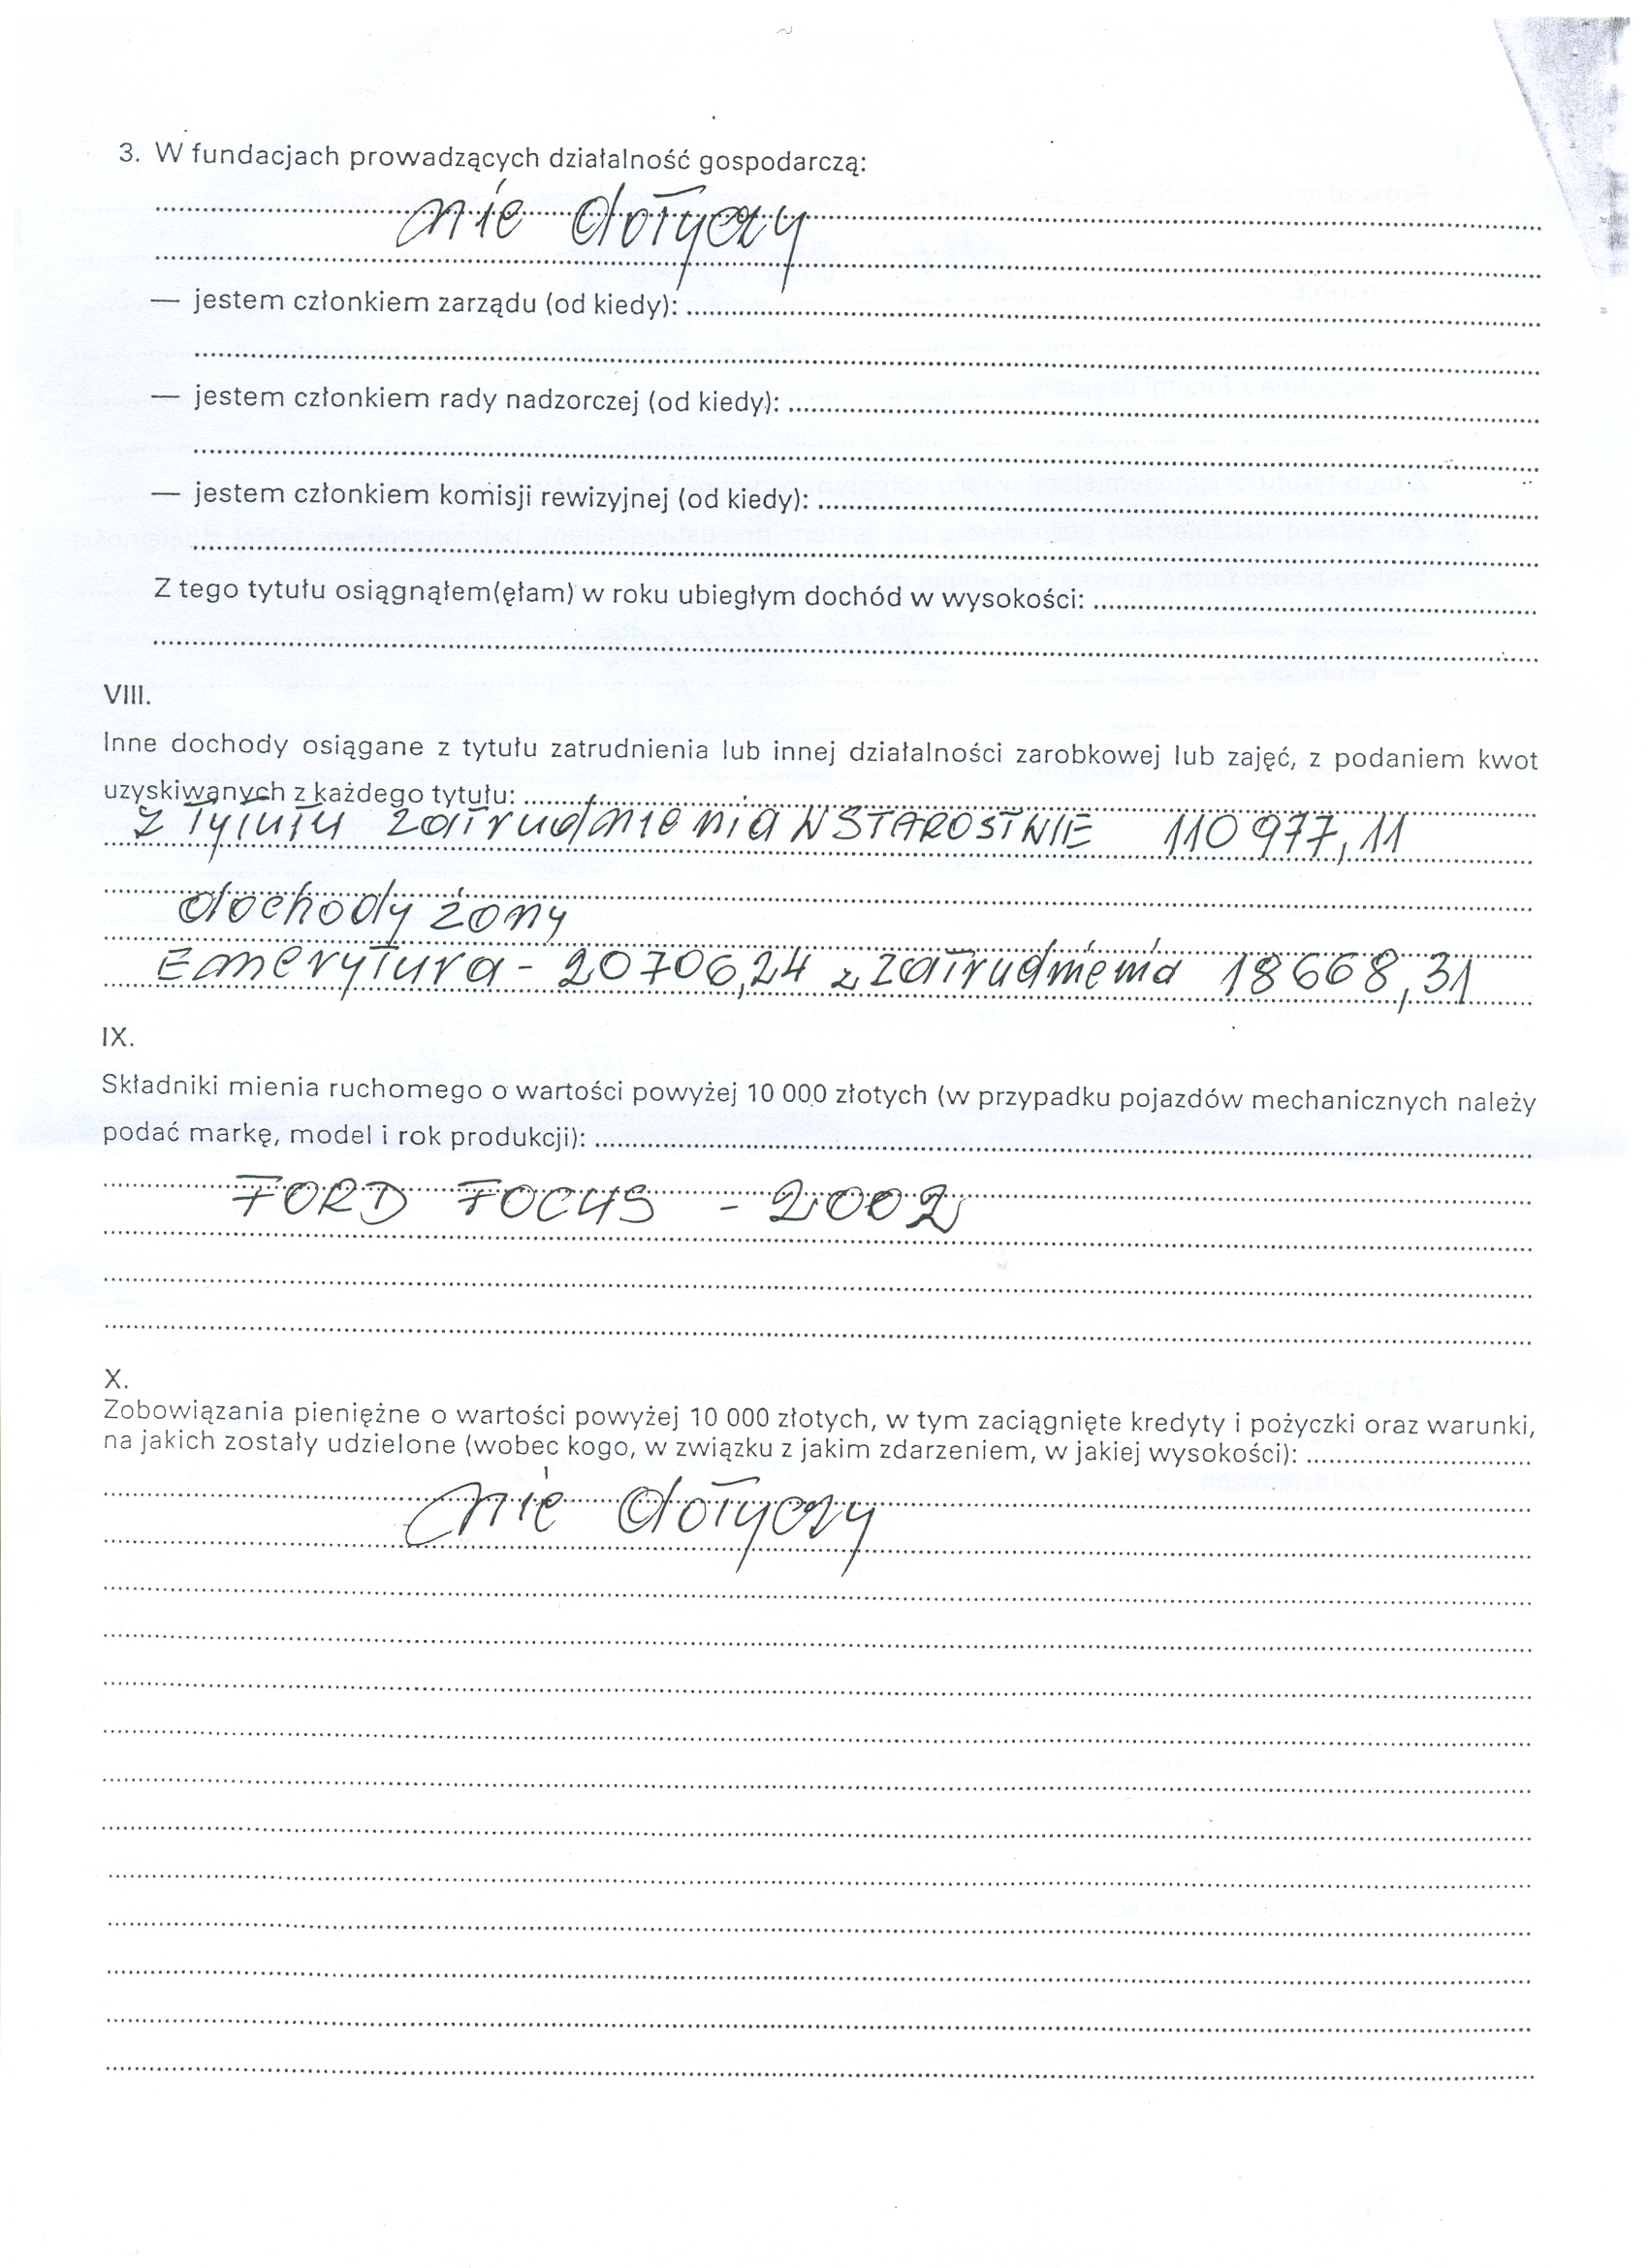 3. W fundacjach prowadzących działalność gospodarczą:
nie dotyczy
— jestem członkiem zarządu (od kiedy):
— jestem członkiem rady nadzorczej (od kiedy):
— jestem członkiem komisji rewizyjnej (od kiedy):
Z tego tytułu osiągnąłem(ęłam) w roku ubiegłym dochód w wysokości:
VIII.
Inne dochody osiągane z tytułu zatrudnienia lub innej działalności zarobkowej lub zajęć, z podaniem kwot
uzyskiwanych z każdego tytułu:
z tytułu zatrudnienia W STAROSTWIE 110 977,11
dochody żony
Emerytura - 20706,24 z zatrudnienia 18668,31
IX.
Składniki mienia ruchomego o wartości powyżej 10 000 złotych (w przypadku pojazdów mechanicznych należy
podać markę, model i rok produkcji):
FORD FOCUS - 2002
X.
Zobowiązania pieniężne o wartości powyżej 10 000 złotych, w tym zaciągnięte kredyty i pożyczki oraz warunki,
na jakich zostały udzielone (wobec kogo, w związku z jakim zdarzeniem, w jakiej wysokości):
nie dotyczy